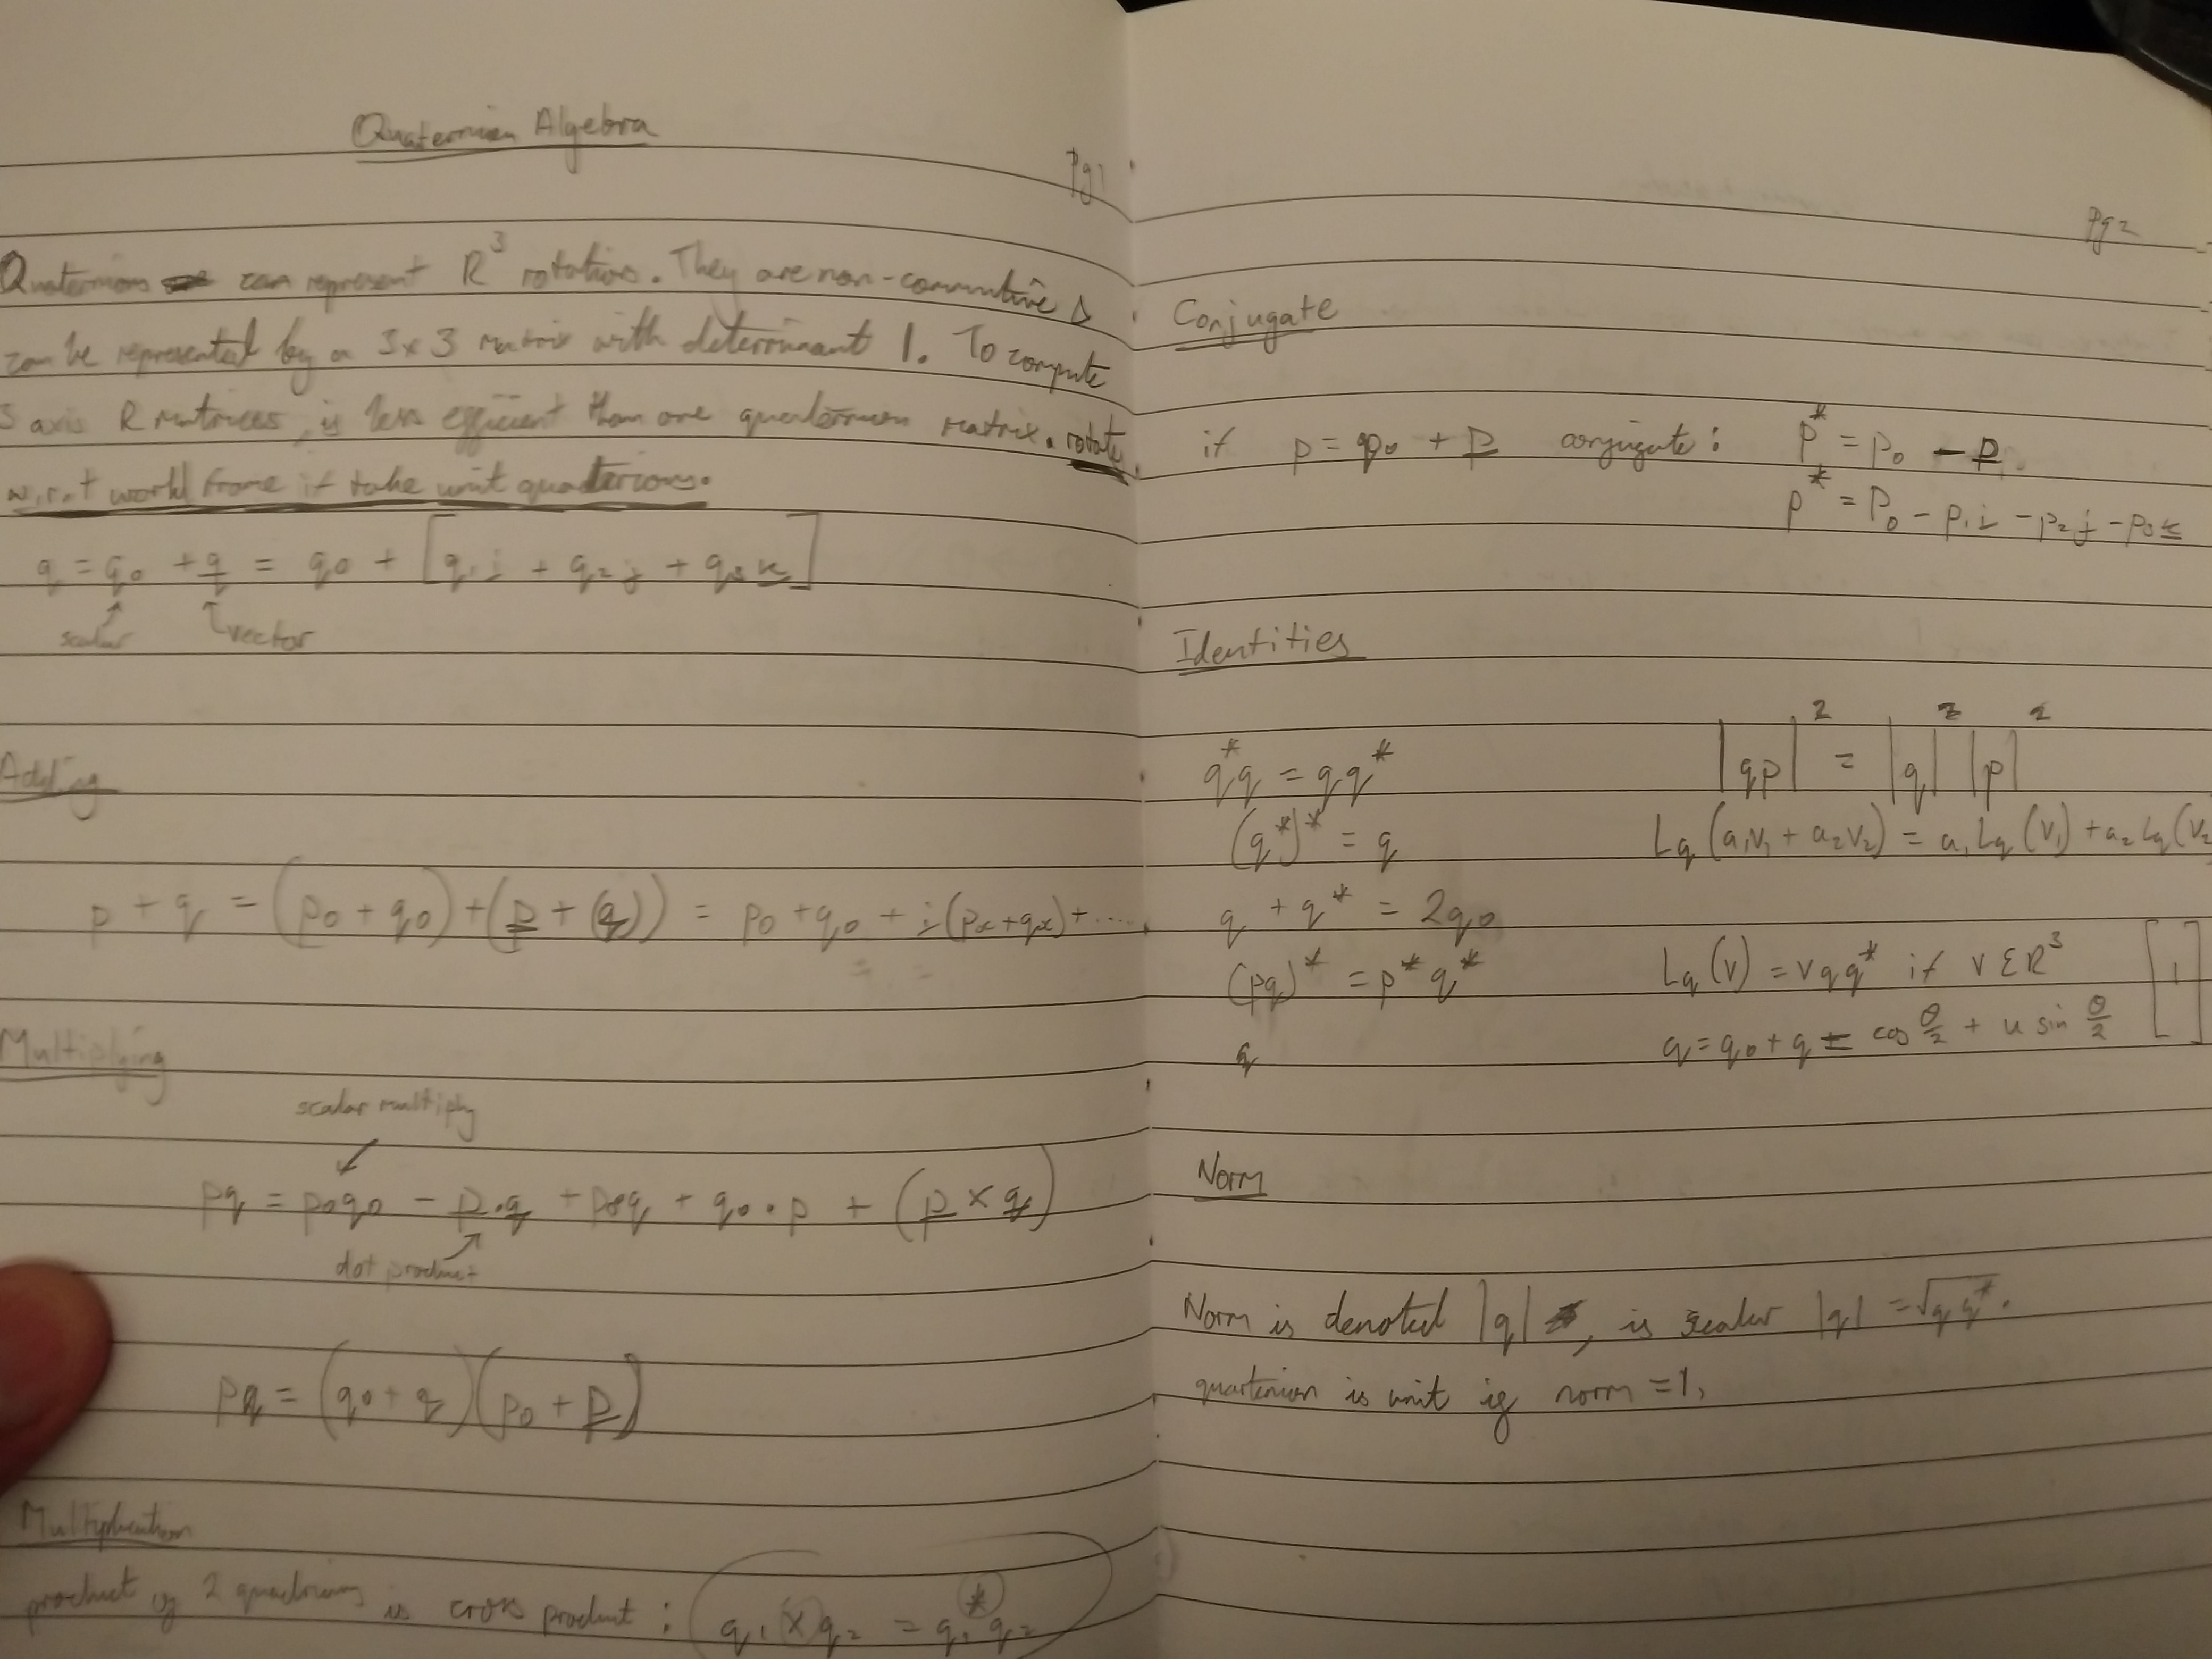 Quaternion Algebra
Pg1
Quaternions can represent R³ rotations. They are non-commutive &
can be represented by a 3x3 matrix with determinant 1. To compute
3 axis R matrices, is less efficient than one quaternion matrix. rotate
w.r.t world frame if take unit quaterions.
q = q₀ + q = q₀ + [q₁i + q₂j + q₃k]
scalar vector
Adding
p + q = (p₀ + q₀) + (p + (q)) = p₀ + q₀ + i(pₓ+qₓ) + ....
Multiplying
scalar multiply
pq = p₀q₀ - p·q + p₀q + q₀·p + (p × q)
dot product
pq = (q₀ + q)(p₀ + p)
Multiplication
product of 2 quadrions is cross product : q₁ × q₂ = q₁* q₂
Pg2
Conjugate
if p = p₀ + p conjugate: p* = p₀ - p
p* = p₀ - p₁i - p₂j - p₃k
Identities
q*q = qq* |qp|² = |q|² |p|²
(q*)* = q Lq(a₁v₁ + a₂v₂) = a₁Lq(v₁) + a₂Lq(v₂
q + q* = 2q₀
(pq)* = p*q* Lq(v) = vqq* if v ε R³
q q = q₀ + q = cos θ/2 + u sin θ/2
Norm
Norm is denoted |q|, is scalar |q| = √qq*.
quartenion is unit if norm = 1,